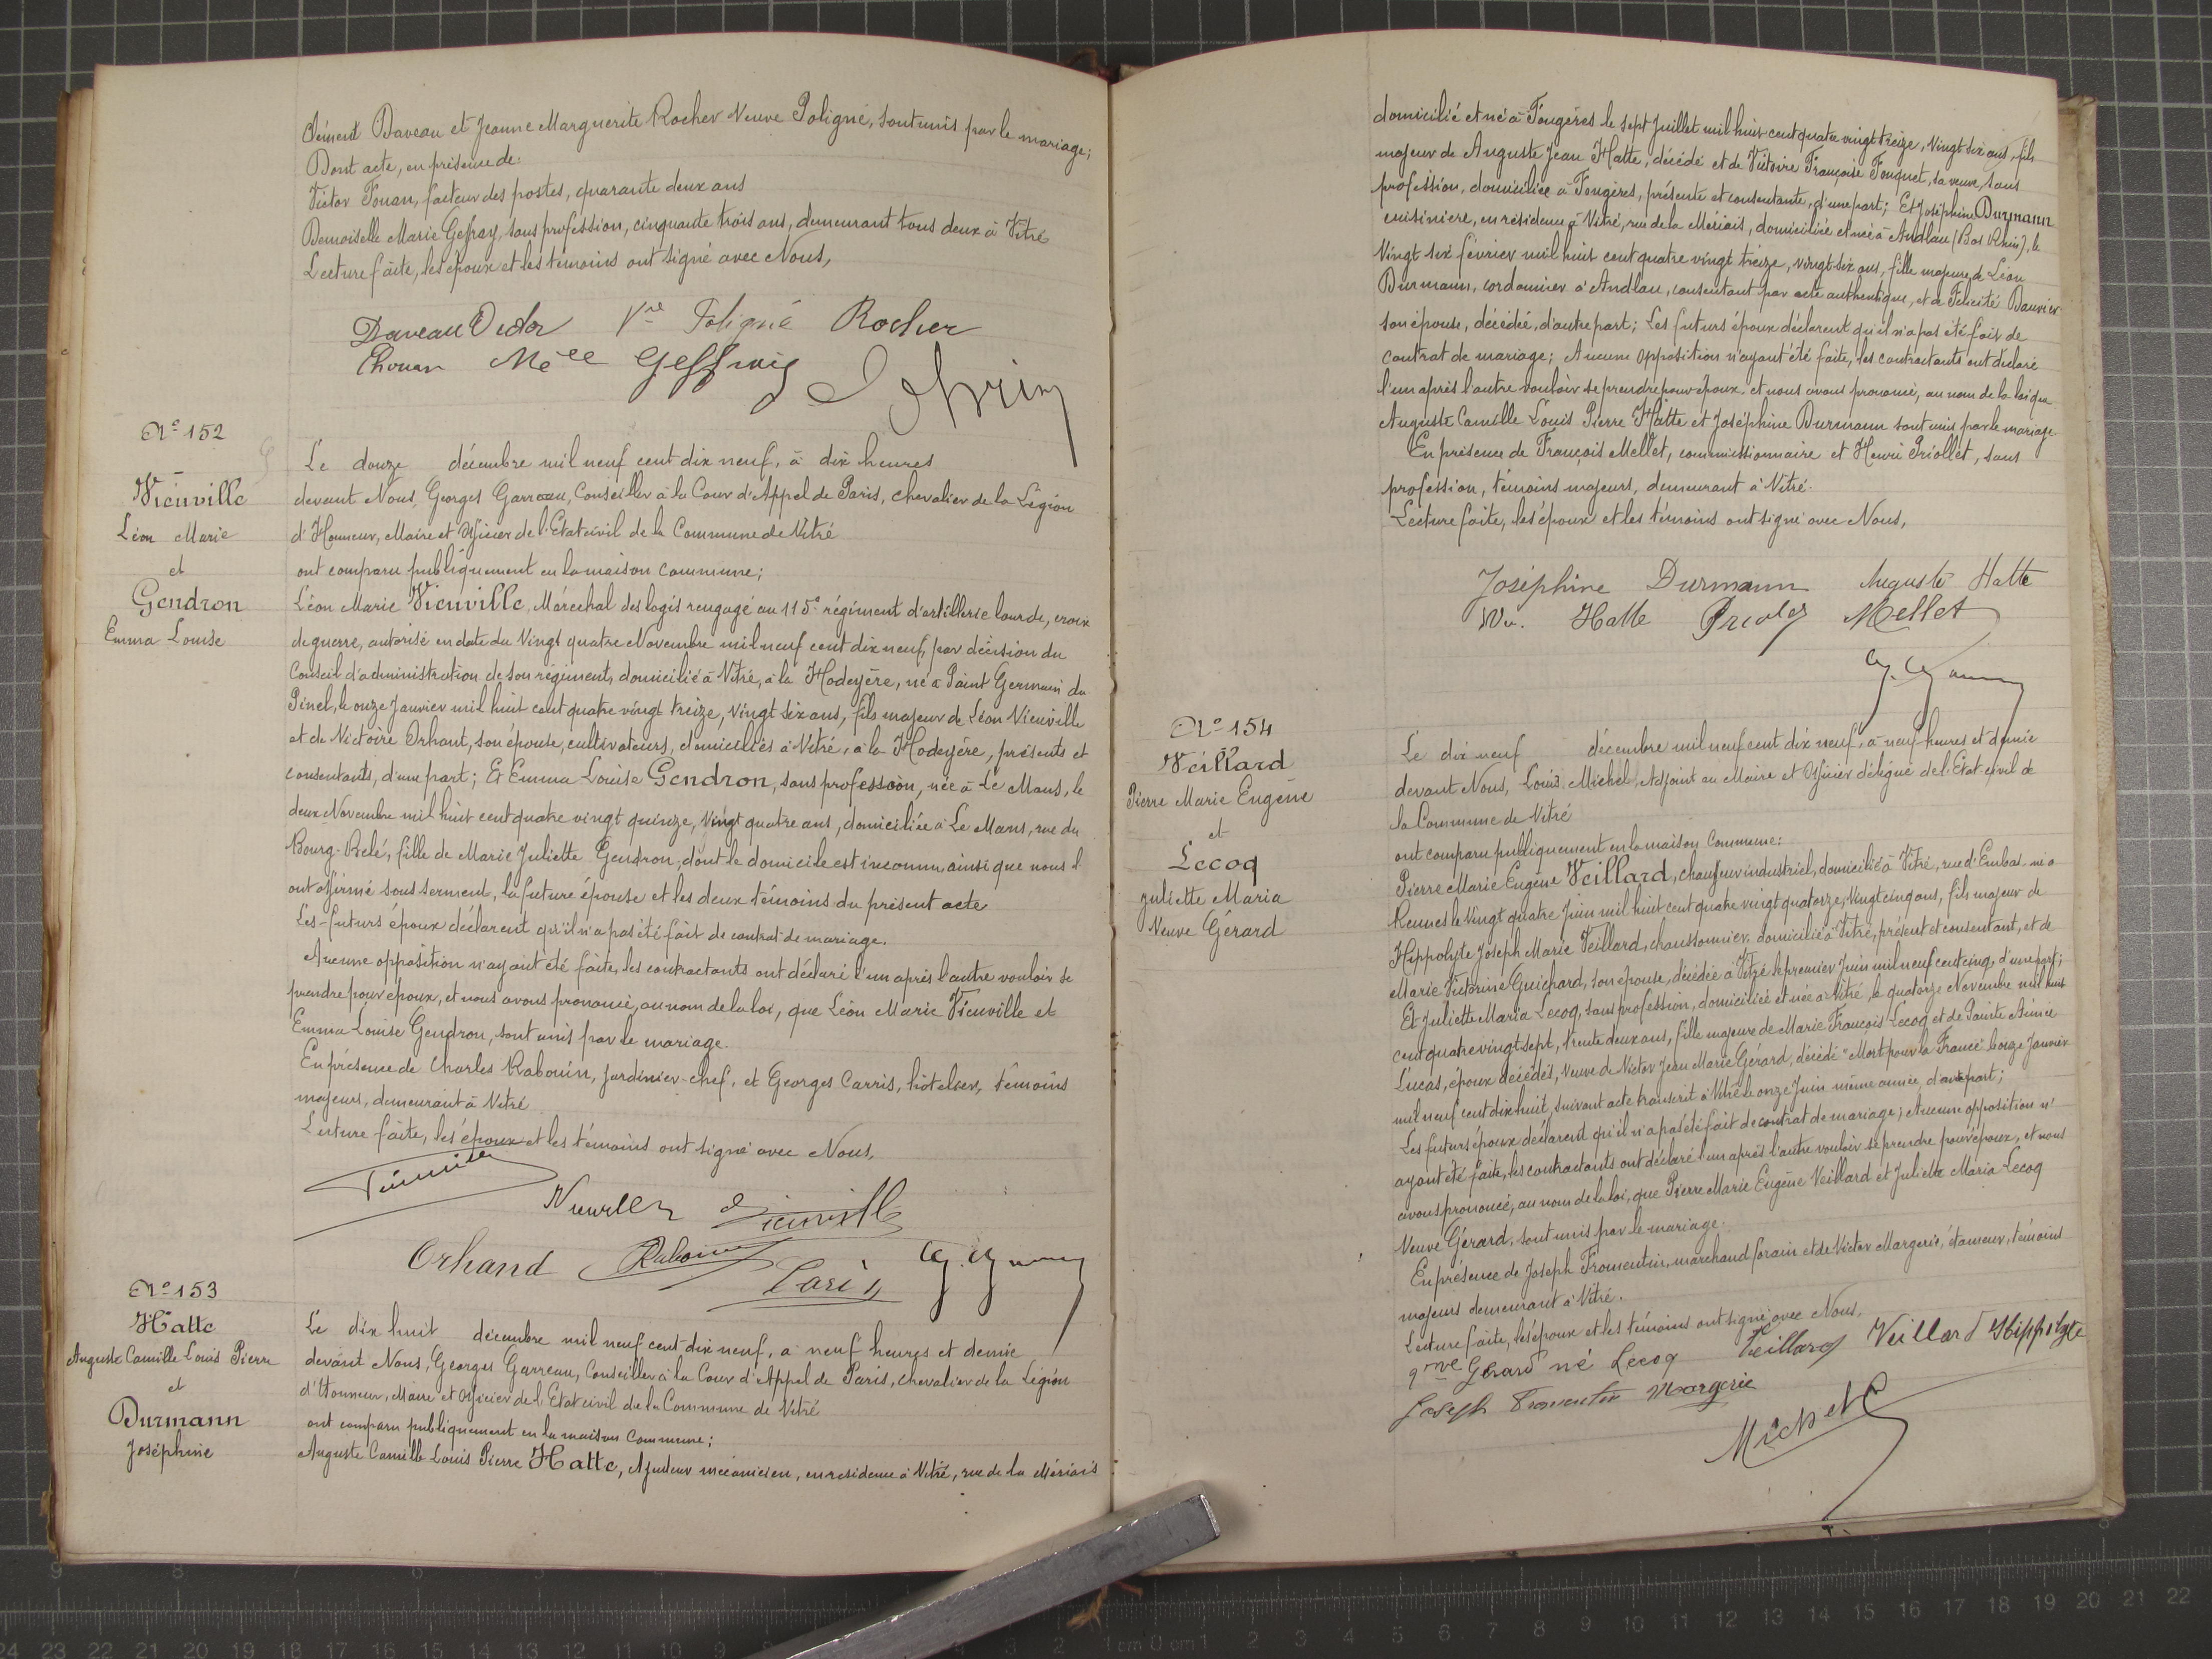 Clément Daveau et Jeanne Marguerite Rocher Veuve Poligné, sont unis par le mariage;
Dont acte, en présence de:
Victor Fouan, facteur des postes, quarante deux ans
Demoiselle Marie Gefray, sans profession, cinquante trois ans, demeurant tous deux à Vitré
Lecture faite, les époux et les témoins ont signé avec Nous,
Daveau Victor Vve Poligné Rocher
Chouan Melle Geffraiy
N° 152
Viéuville
Léon Marie
et
Gendron
Emma Louise
Le douze décembre mil neuf cent dix neuf, à dix heures
devant Nous, Georges Garreau, Conseiller à la Cour d'Appel de Paris, chevalier de la Légion
d'Honneur, Maire et Officier de l'Etat civil de la Commune de Vitré
ont comparu publiquement en la maison commune;
Léon Marie Vieuville, Maréchal des logis rengagé au 115e régiment d'artillerie lourde, croix
de guerre, autorisé en date du Vingt quatre Novembre mil neuf cent dix neuf, par décision du
Conseil d'administration de son régiment, domicilié à Vitré, à la Hodeyère, né à Saint Germain du
Pinel, le onze Janvier mil huit cent quatre vingt treize, vingt six ans, fils majeur de Léon Vieuville
et de Victoire Orhant, son épouse, cultivateurs, domiciliés à Vitré, à la Hodeyère, présents et
consentants, d'une part; Et Emma Louise Gendron, sans profession, née à Le Mans, le
deux Novembre mil huit cent quatre vingt quinze, Vingt quatre ans, domiciliée à Le Mans, rue du
Bourg-Belé, fille de Marie Juliette Gendron, dont le domicile est inconnu, ainsi que nous l'
ont affirmé sous serment, la future épouse et les deux témoins du présent acte
Les futurs époux déclarent qu'il n'a pas été fait de contrat de mariage.
Aucune opposition n'ayant été faite, les contractants ont déclaré l'un après l'autre vouloir se
prendre pour époux, et nous avons prononcé, au nom de la loi, que Léon Marie Viéuville et
Emma Louise Gendron, sont unis par le mariage.
En présence de Charles Rabouin, Jardinier-chef, et Georges Carris, hôtelier, témoins
majeurs, demeurant à Vitré
Lecture faite, les époux et les témoins ont signé avec Nous,
Vieuville
Orhand Rabouin G. Garreau
N° 153
Hatte
Auguste Camille Louis Pierre
et
Durmann
Joséphine
Le dix huit décembre mil neuf cent dix neuf, à neuf heures et demie
devant Nous, Georges Garreau, Conseiller à la Cour d'Appel de Paris, chevalier de la Légion
d'Honneur, Maire et Officier de l'Etat civil de la Commune de Vitré
ont comparu publiquement en la maison commune;
Auguste Camille Louis Pierre Hatte, Ajusteur mécanicien, en résidence à Vitré, rue de la Mériais
domicilié et né à Fougères le sept Juillet mil huit cent quatre vingt treize, Vingt six ans, fils
majeur de Auguste Jean Hatte, décédé et de Victoire Françoise Fouquet, sa veuve, sans
profession, domiciliée à Fougères, présente et consentante, d'une part; Et Joséphine Durmann
cuisinière, en résidence à Vitré, rue de la Mériais, domiciliée et née à Andlau (Bas Rhin), le
Vingt six février mil huit cent quatre vingt treize, vingt-six ans, fille majeure de Léon
Durmann, cordonnier à Andlau, consentant par acte authentique, et de Félicité
son épouse, décédée, d'autre part; Les futurs époux déclarent qu'il n'a pas été fait de
contrat de mariage; Aucune opposition n'ayant été faite, les contractants ont déclaré
l'un après l'autre vouloir se prendre pour époux et nous avons prononcé, au nom de la loi que
Auguste Camille Louis Pierre Hatte et Joséphine Durmann sont unis par le mariage.
En présence de François Mellet, commissionnaire et Henri Priollet, sans
profession, témoins majeurs, demeurant à Vitré.
Lecture faite, les époux et les témoins ont signé avec Nous,
Joséphine Durmann Auguste Hatte
Vve. Hatte Mellet
G. Garreau
N° 154
Veillard
Pierre Marie Eugène
et
Lecoq
Juliette Maria
Veuve Gérard
Le dix neuf décembre mil neuf cent dix neuf, à neuf heures et demie
devant Nous, Louis Michel, Adjoint au Maire et Officier délégué de l'Etat civil de
la Commune de Vitré
ont comparu publiquement en la maison commune:
Pierre Marie Eugène Veillard, chauffeur industriel, domicilié à Vitré, rue d'Embas, né à
Rennes le Vingt quatre Juin mil huit cent quatre vingt quatorze, Vingt cinq ans, fils majeur de
Hippolyte Joseph Marie Veillard, chaussonnier, domicilié à Vitré, présent et consentant, et de
Marie Victorine Guichard, son épouse, décédée à Vitré le premier Juin mil neuf cent cinq, d'une part;
Et Juliette Maria Lecoq, sans profession, domiciliée et née à Vitré, le quatorze Novembre mil huit
cent quatre vingt sept, trente deux ans, fille majeure de Marie François Lecoq et de Sainte Aimée
Lucas, époux décédés, Veuve de Victor Jean Marie Gérard, décédé "Mort pour la France" le onze Janvier
mil neuf cent dix huit, suivant acte transcrit à Vitré le onze Juin même année, d'autre part;
Les futurs époux déclarent qu'il n'a pas été fait de contrat de mariage; Aucune opposition n'
ayant été faite, les contractants ont déclaré l'un après l'autre vouloir se prendre pour époux, et nous
avons prononcé, au nom de la loi, que Pierre Marie Eugène Veillard et Juliette Maria Lecoq
Veuve Gérard, sont unis par le mariage.
En présence de Joseph Fromentin, marchand forain et de Victor Margerie, étameur, témoins
majeurs demeurant à Vitré.
Lecture faite, les époux et les témoins ont signé avec Nous,
Gérard né Lecoq Veillard Veillard Hippolyte
Joseph Fromentin Margerie
Michel